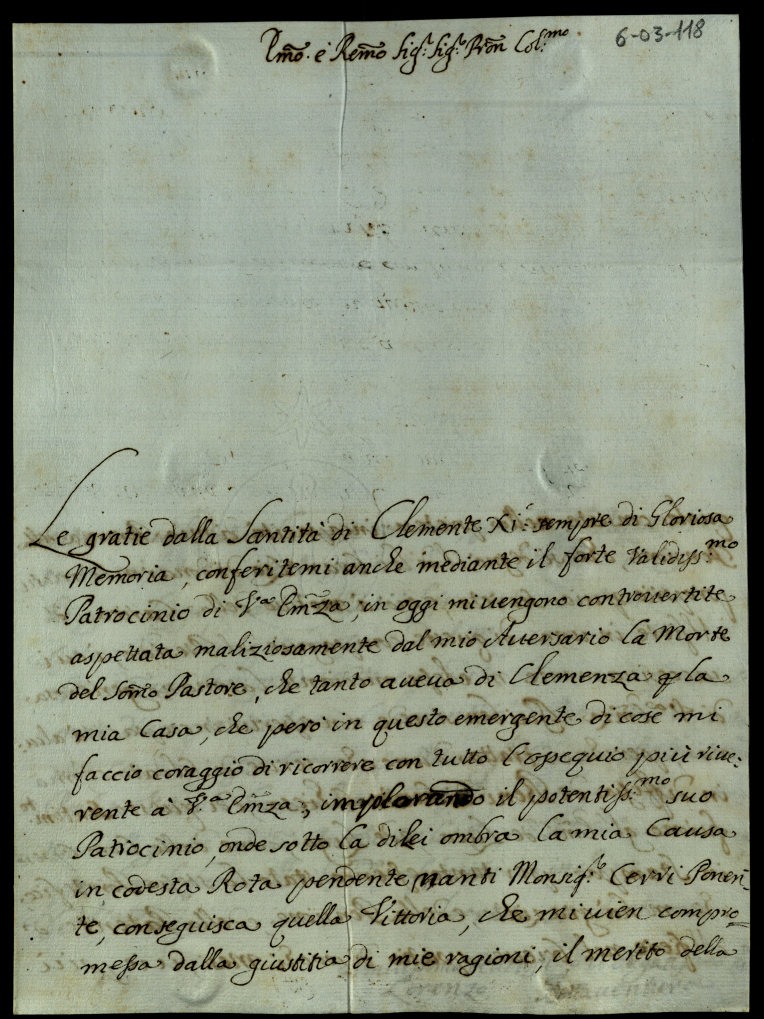 6-03-118
Emo. e Remo Sigr. Sigr. Pron Col.mo
Le gratie dalla Santità di Clemente XI: sempre di Gloriosa
Memoria, conferitemi anche mediante il forte validiss.mo
Patrocinio di V.a Emza, in oggi mi vengono controvertite
aspettata maliziosamente dal mio Auersario la Morte
del Somo Pastore, che tanto aveva di Clemenza p la
mia Casa, che però in questo emergente di cose mi
faccio coraggio di ricorrere con tutto l'ossequio più rive:
rente à V.a Emza, implorando il potentiss.mo suo
Patrocinio, onde sotto la di lei ombra la mia Causa
in codesta Rota pendente nanti Monsigr. Cerri Ponen-
te, conseguisca quella Vittoria, che mi vien compro=
messa dalla giustitia di mie ragioni, il merito della